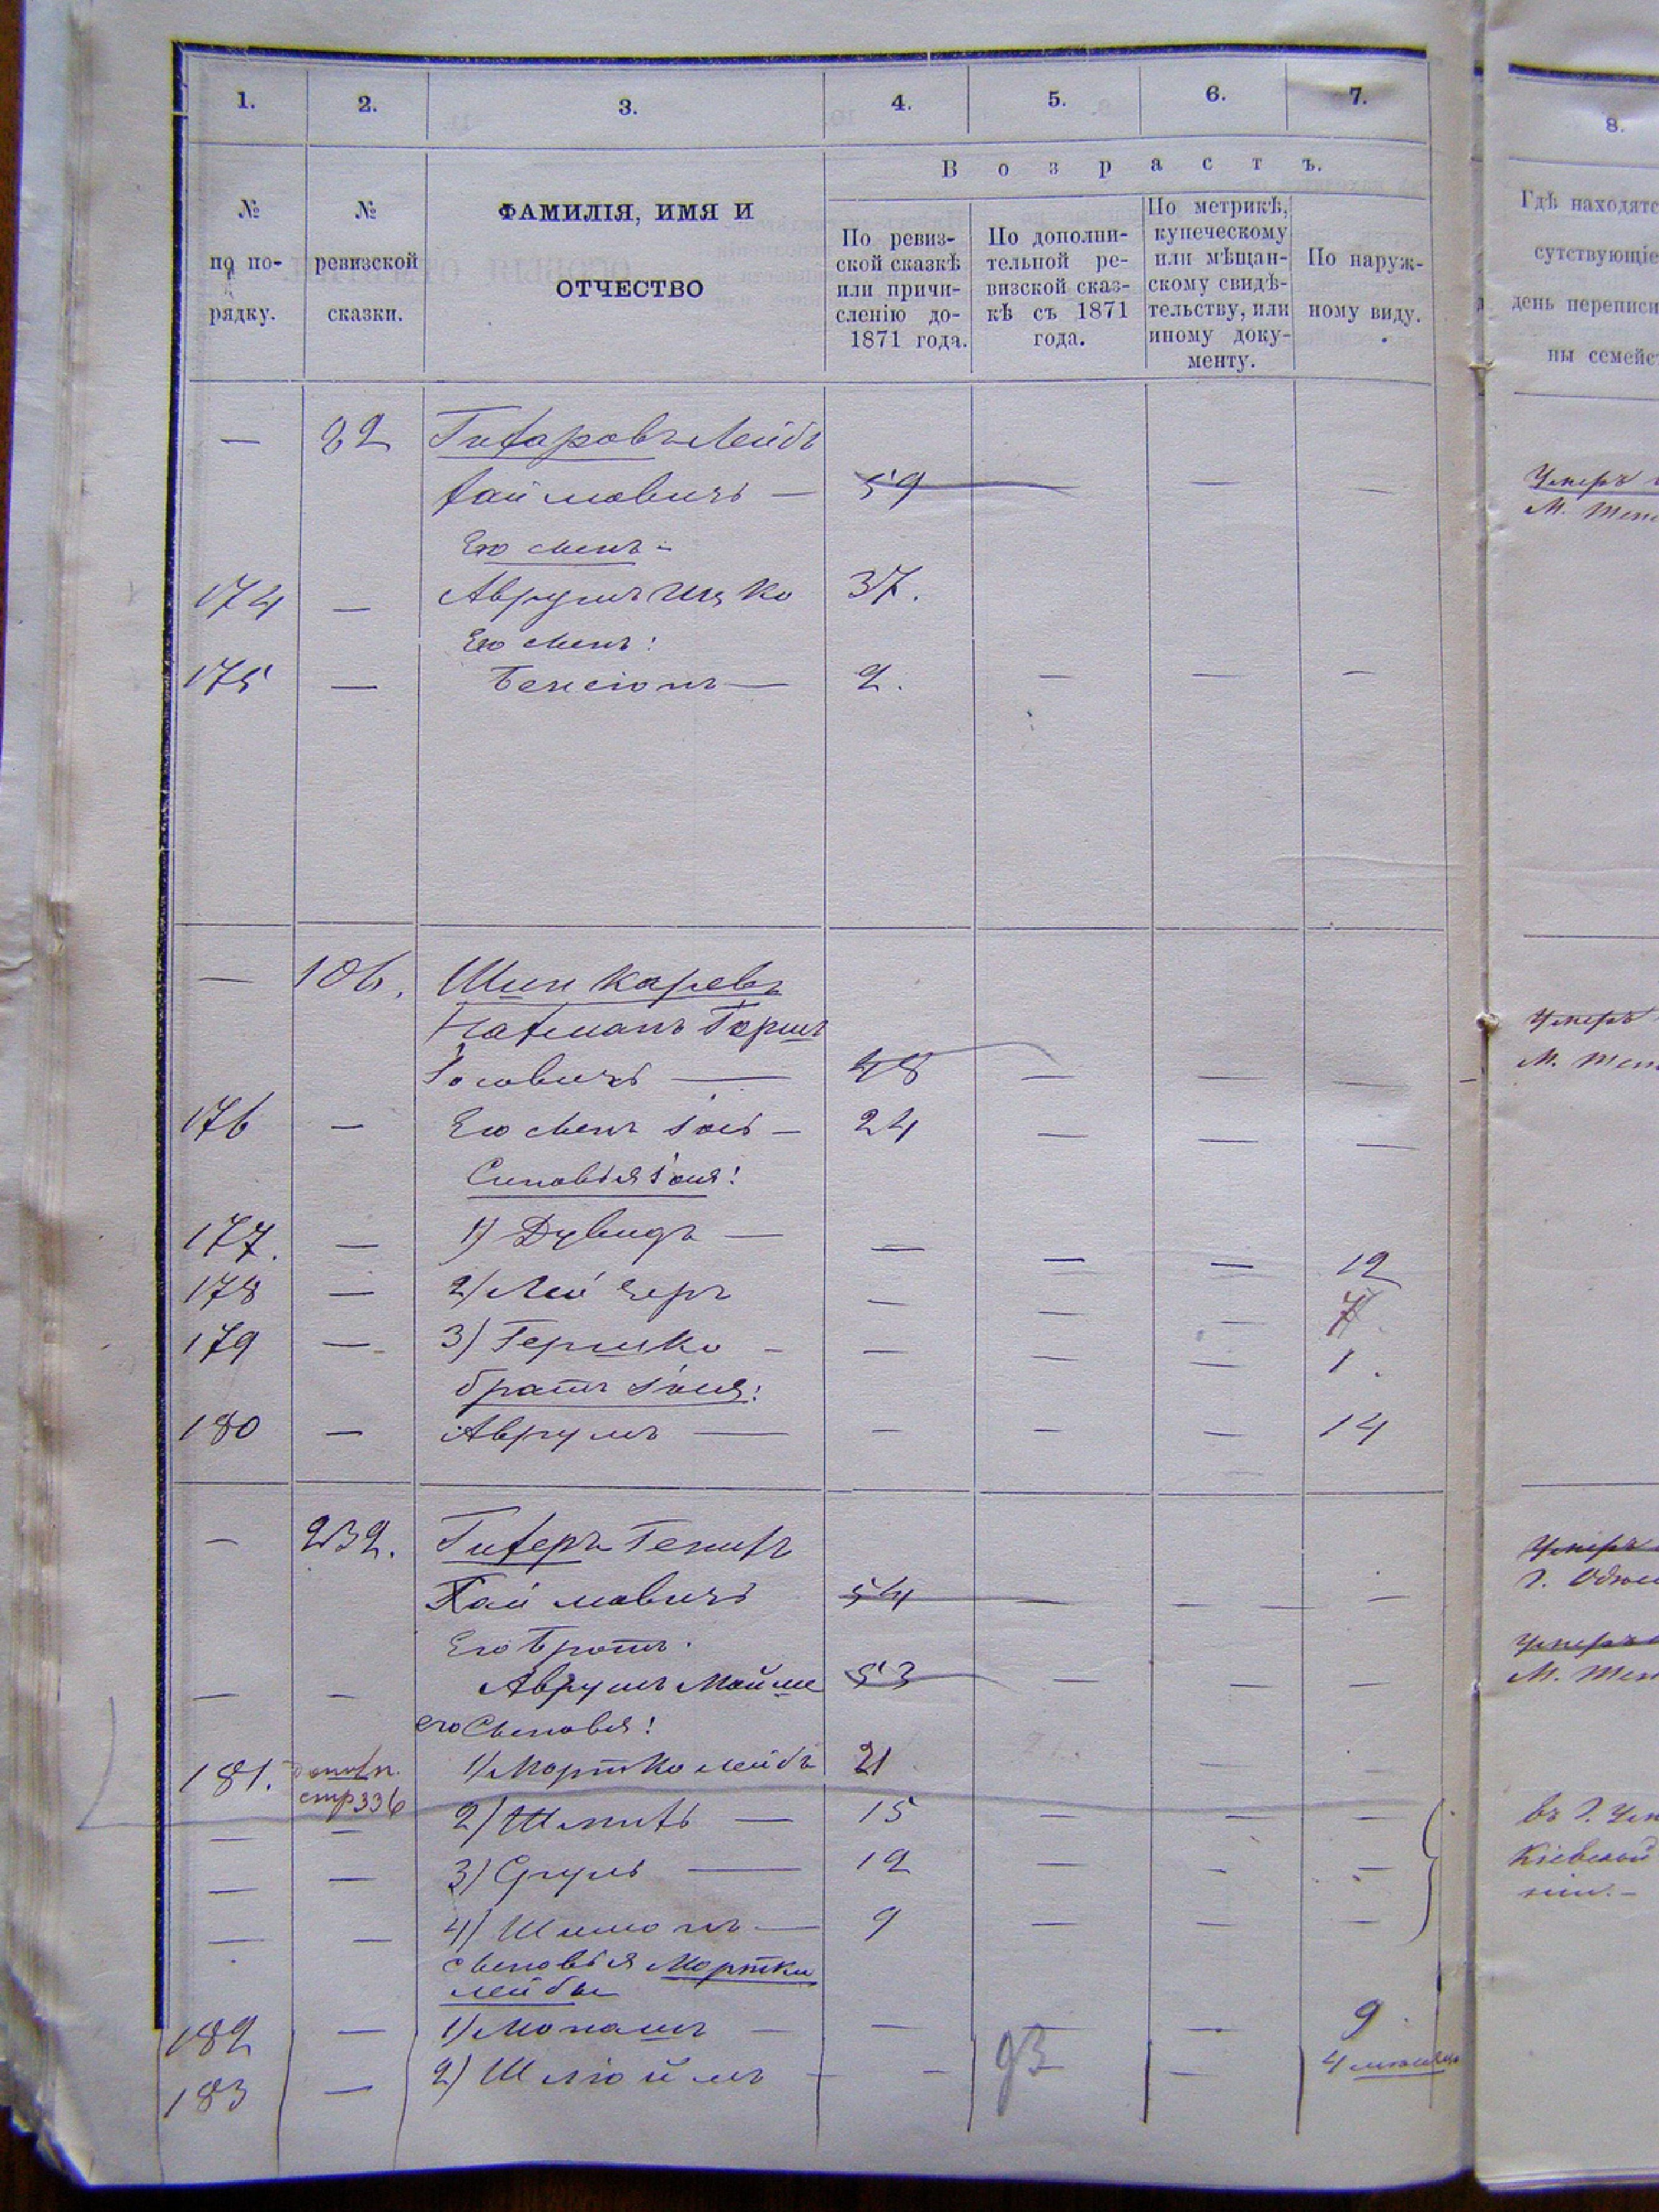 1.
2.
3.
4.
5.
6.
7.
8.
№
по по-
рядку.
№
ревизской
сказки.
ФАМИЛІЯ, ИМЯ И
ОТЧЕСТВО
Возрастъ.
По ревиз-
ской сказкѣ
или причи-
сленію до-
1871 года.
По дополни-
тельной ре-
визской сказ-
кѣ съ 1871
года.
По метрикѣ,
купеческому
или мѣщан-
скому свидѣ-
тельству, или
иному доку-
менту.
По наруж-
ному виду.
Гдѣ находятс
сутствующіе
день переписи
ны семейс
— 82 Лейбъ
Хаимовичъ — 59 — — —
Умеръ
М.
Его сынъ
174 — Аврумъ Ицко 37.
Его сынъ:
175 — Бенсіонъ — 2. — — —
— 106. Шинкаревъ
Нахманъ Гершъ
Іосовичъ — 48 — — —
Умеръ
М.
176 — Его сынъ Іось — 24 — — —
Сыновья Іося:
177. — 1) Дувидъ — — — — 12
178 — 2) Мейеръ — — — 7
179 — 3) Гершко — — — — 1.
братъ Іося:
180 — Аврумъ — — — — 14
— 232. Гихеръ Генихъ
Хаимовичъ 54 — — —
Умеръ
Его братъ.
— — Аврумъ Мойше 53 — — —
Умеръ
М.
его Сыновья:
181. дополн.
стр 336
1) Мортко Лейбъ 21 — —
— — 2) Шмить — 15 — — —
въ г. Ум
— — 3) Сруль — 12 — — —
Кіевской
— — 4) Шимонъ — 9 — — —
сыновья Мортки
Лейбы
182 — 1) Монашъ — — — — 9.
183 — 2) Шліойма — — — 4 мѣсяца
93